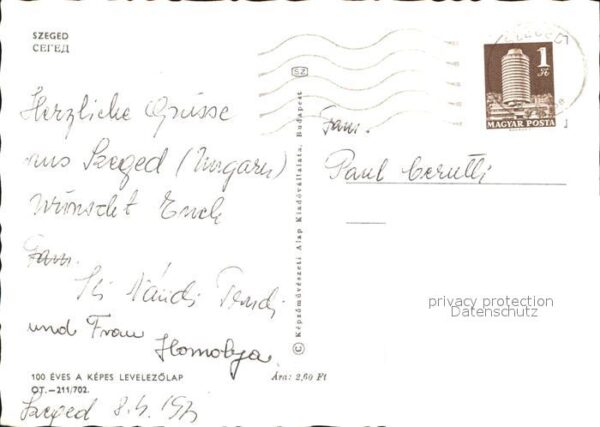 SZEGED
СЕГЕД
Herzliche Grüsse
aus Szeged (Ungarn)
wünscht Euch
Fam.
Nándi
und Frau
Homolya
100 ÉVES A KÉPES LEVELEZŐLAP
OT.—211/702.
Ára: 2,60 Ft
Szeged
SZ
© Képzőművészeti Alap Kiadóvállalata, Budapest
SZEGED 1
1 Ft
MAGYAR POSTA
Fam.
Paul Cerutti
privacy protection
Datenschutz